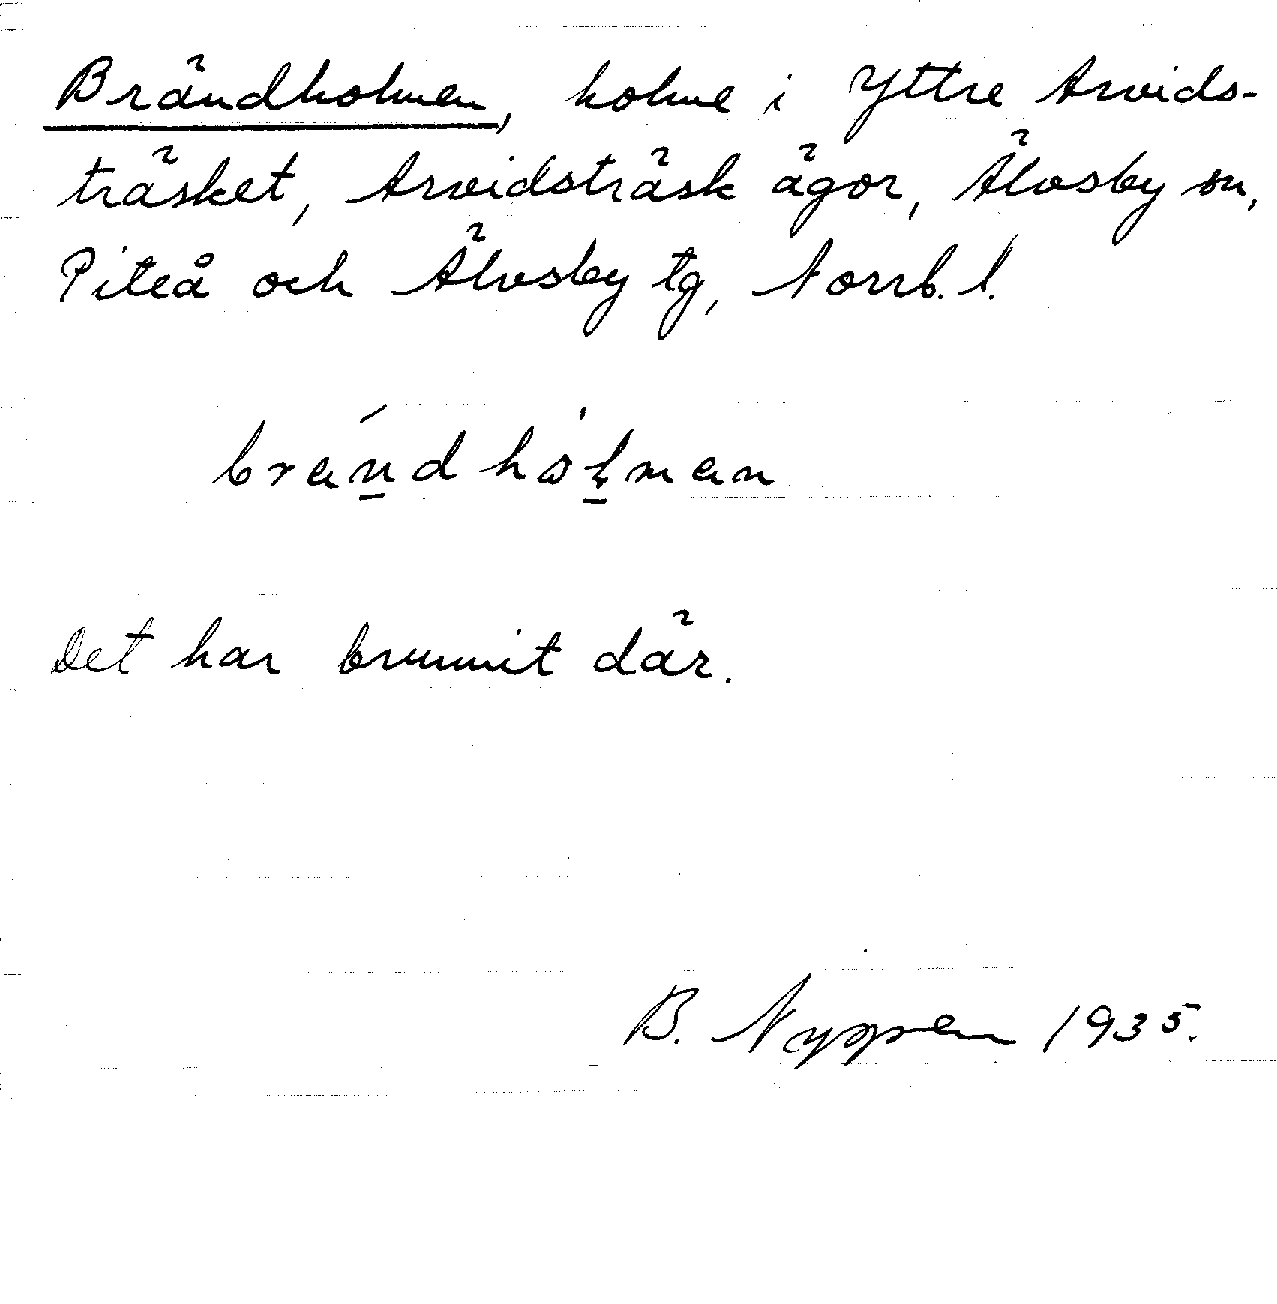 Brändholmen, holme i Yttre Arvids-
träsket, Arvidsträsk ägor, Älvsby sn,
Piteå och Älvsby tg, Norrb. l.
brand hólman
Det har brunnit där.
B. Nyppen 1935.